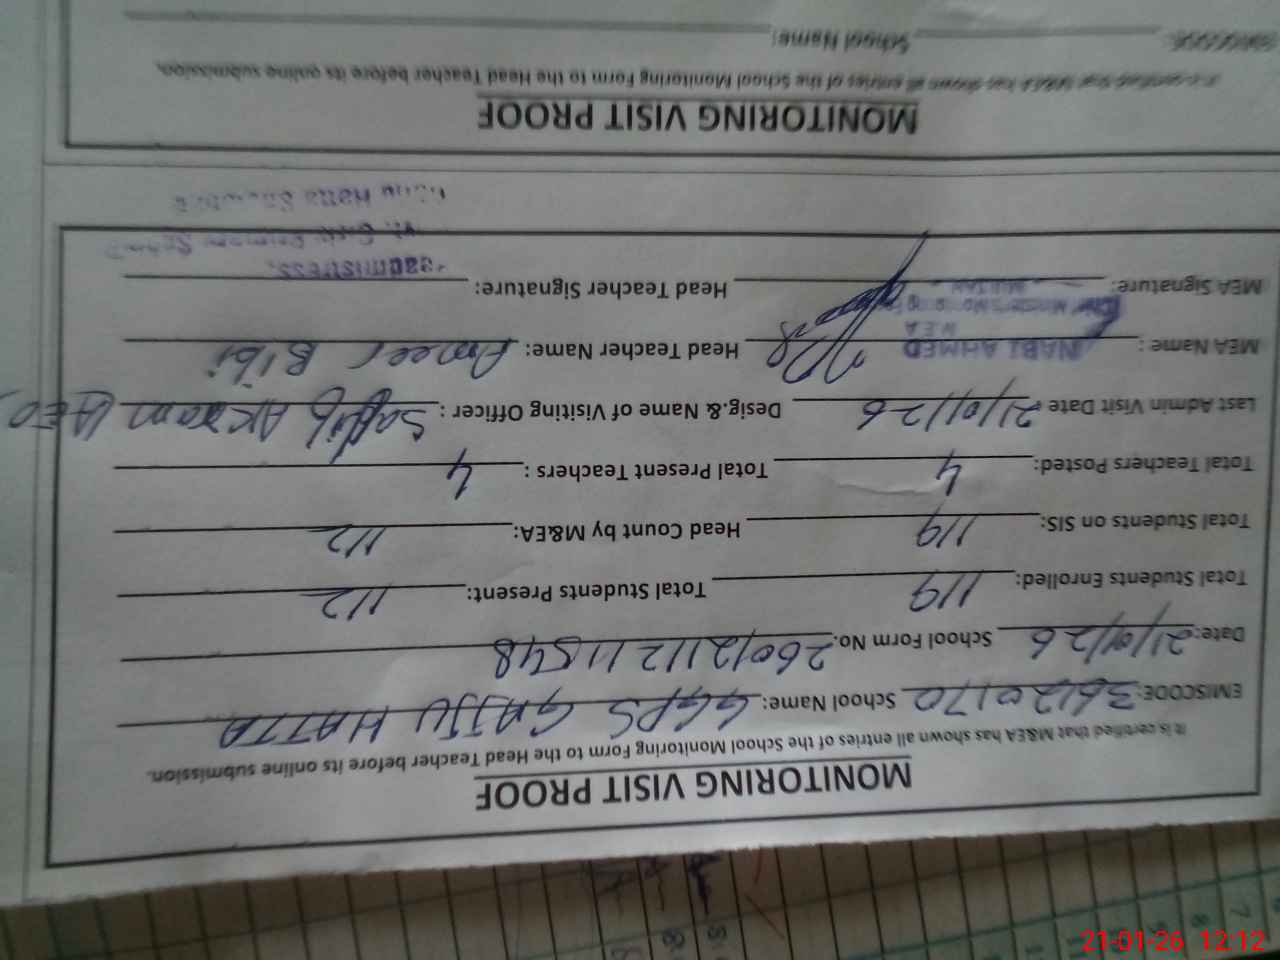 MONITORING VISIT PROOF
It is certified that M&EA has shown all entries of the School Monitoring Form to the Head Teacher before its online submission.
EMISCODE: 36120170 School Name: GGPS GAJJU HATTA
Date: 21/01/26 School Form No. 2601211211548
Total Students Enrolled: 119 Total Students Present: 112
Total Students on SIS: 119 Head Count by M&EA: 112
Total Teachers Posted: 4 Total Present Teachers : 4
Last Admin Visit Date 21/01/26 Desig.&.Name of Visiting Officer : AKram AEO
MEA Name : NABI AHMED Head Teacher Name: Ameer Bibi
M.E.A
MEA Signature: Head Teacher Signature:
MULTAN
MONITORING VISIT PROOF
It is certified that M&EA has shown all entries of the School Monitoring Form to the Head Teacher before its online submission.
EMISCODE: School Name:
21-01-26 12:12